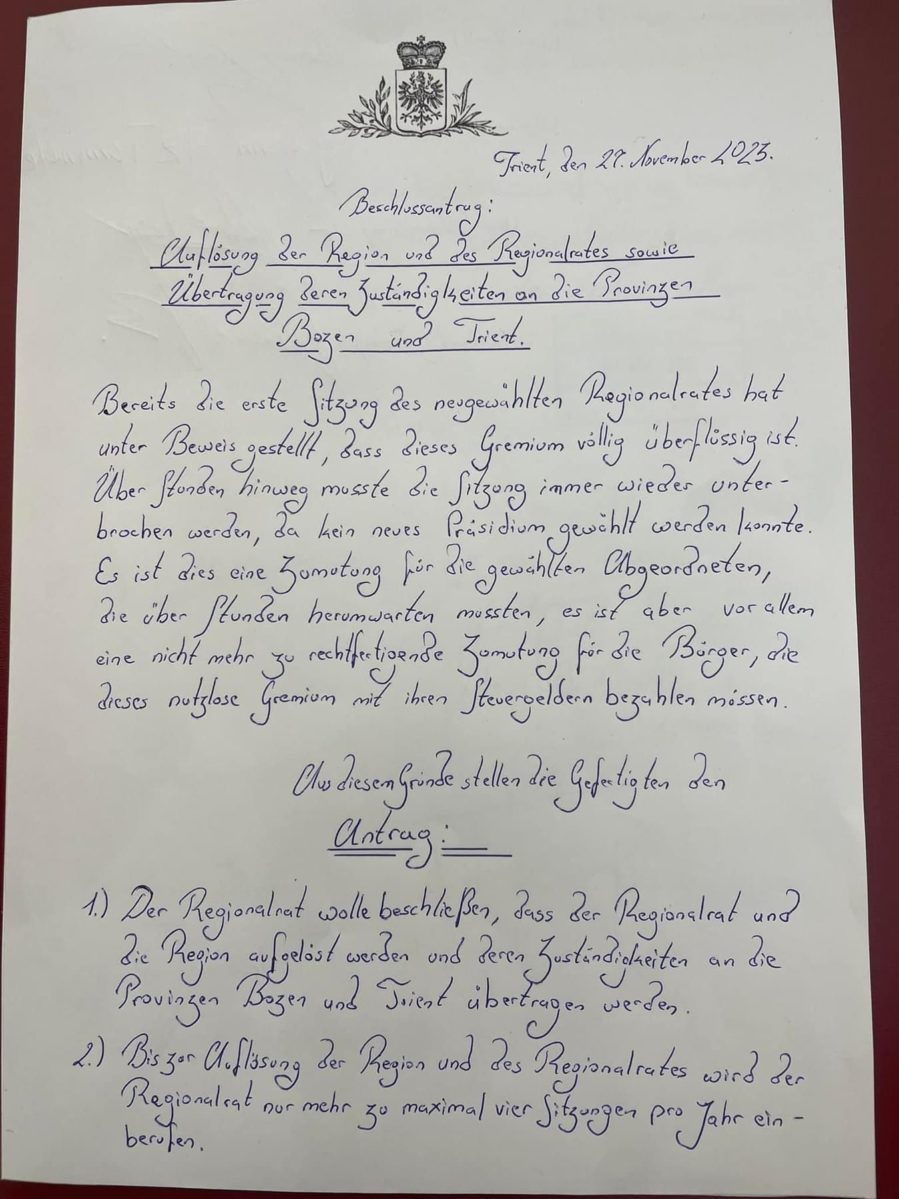 Trient, den 27. November 2023.
Beschlussantrag:
Auflösung der Region und des Regionalrates sowie
Übertragung deren Zuständigkeiten an die Provinzen
Bozen und Trient.
Bereits die erste Sitzung des neugewählten Regionalrates hat
unter Beweis gestellt, dass dieses Gremium völlig überflüssig ist.
Über Stunden hinweg musste die Sitzung immer wieder unter-
brochen werden, da kein neues Präsidium gewählt werden konnte.
Es ist dies eine Zumutung für die gewählten Abgeordneten,
die über Stunden herumwarten mussten, es ist aber vor allem
eine nicht mehr zu rechtfertigende Zumutung für die Bürger, die
dieses nutzlose Gremium mit ihren Steuergeldern bezahlen müssen.
Aus diesem Grunde stellen die Gefertigten den
Antrag:
1.) Der Regionalrat wolle beschließen, dass der Regionalrat und
die Region aufgelöst werden und deren Zuständigkeiten an die
Provinzen Bozen und Trient übertragen werden.
2.) Bis zur Auflösung der Region und des Regionalrates wird der
Regionalrat nur mehr zu maximal vier Sitzungen pro Jahr ein-
berufen.